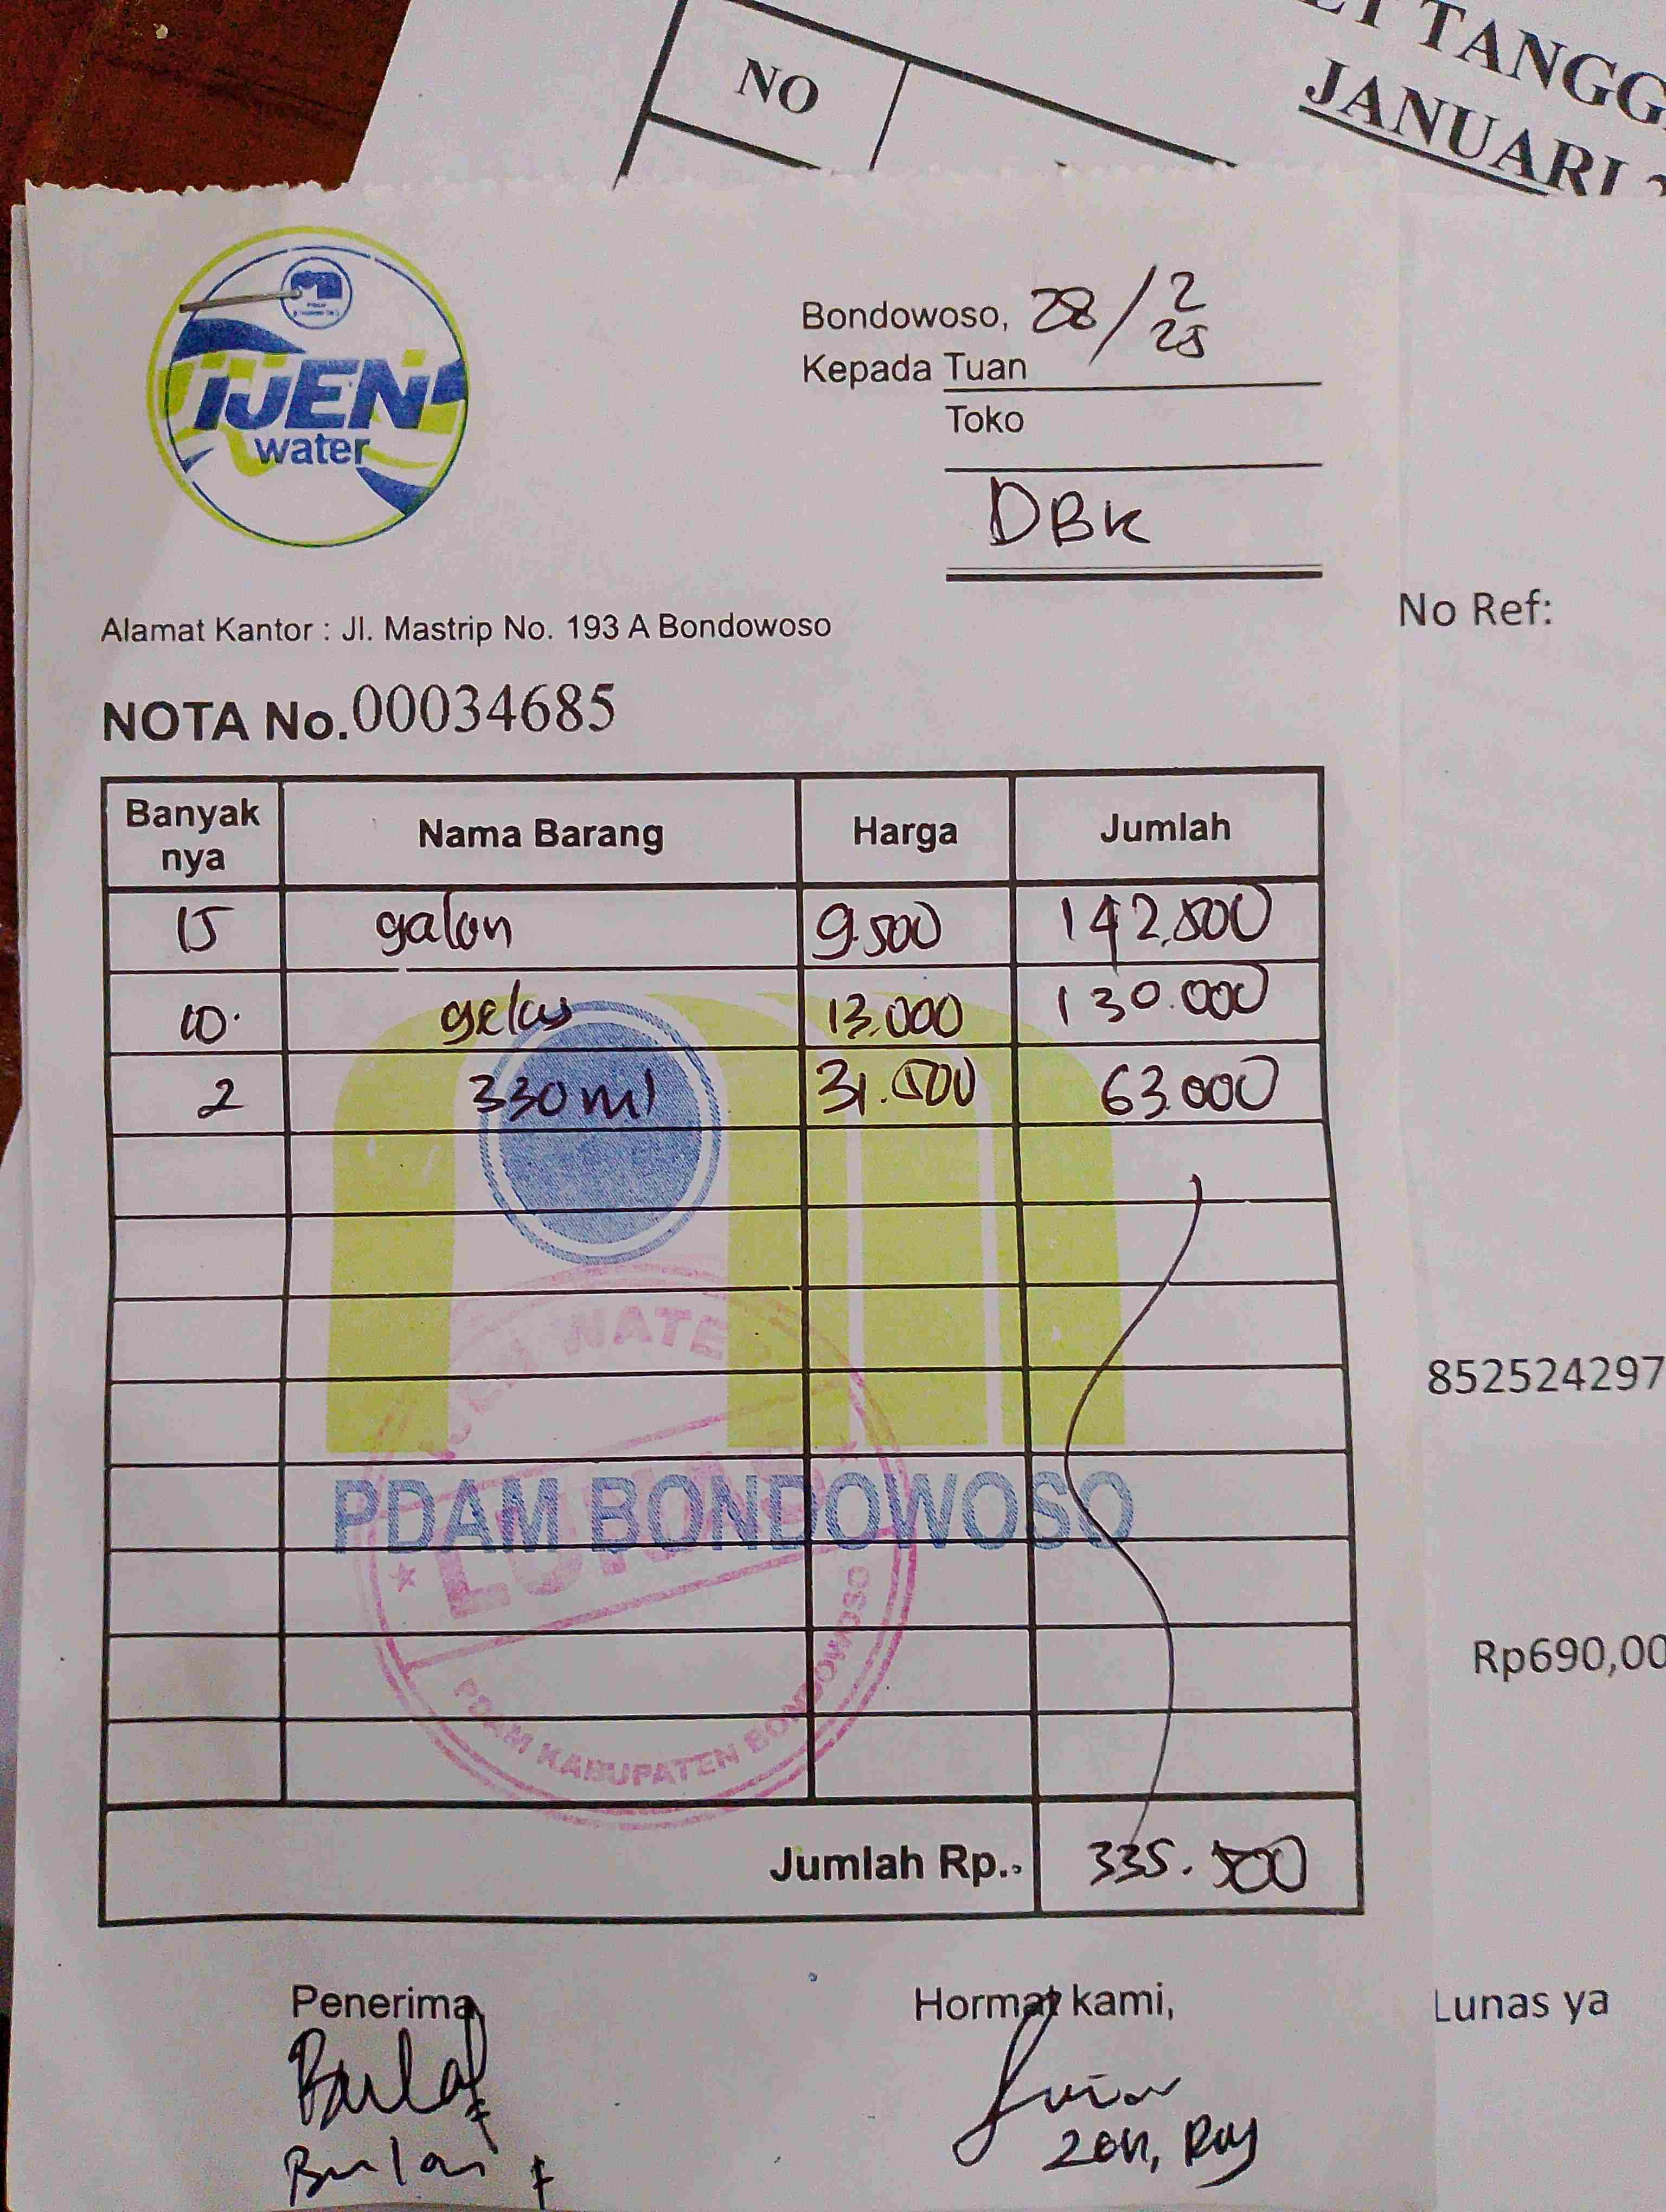 NO
TANGG
JANUARI
IJEN
water
Bondowoso, 28/2
25
Kepada Tuan
Toko
DBK
Alamat Kantor : Jl. Mastrip No. 193 A Bondowoso
No Ref:
NOTA No. 00034685
Banyak nya Nama Barang Harga Jumlah
15 galon 9.500 142.500
10. gelas 13.000 130.000
2 330 ml 31.500 63.000
WATE
852524297
PDAM BONDOWOSO
LUNAS
PDAM KABUPATEN BONDOWOSO
Rp690,00
Jumlah Rp.. 335.500
Penerima Hormat kami,
Lunas ya